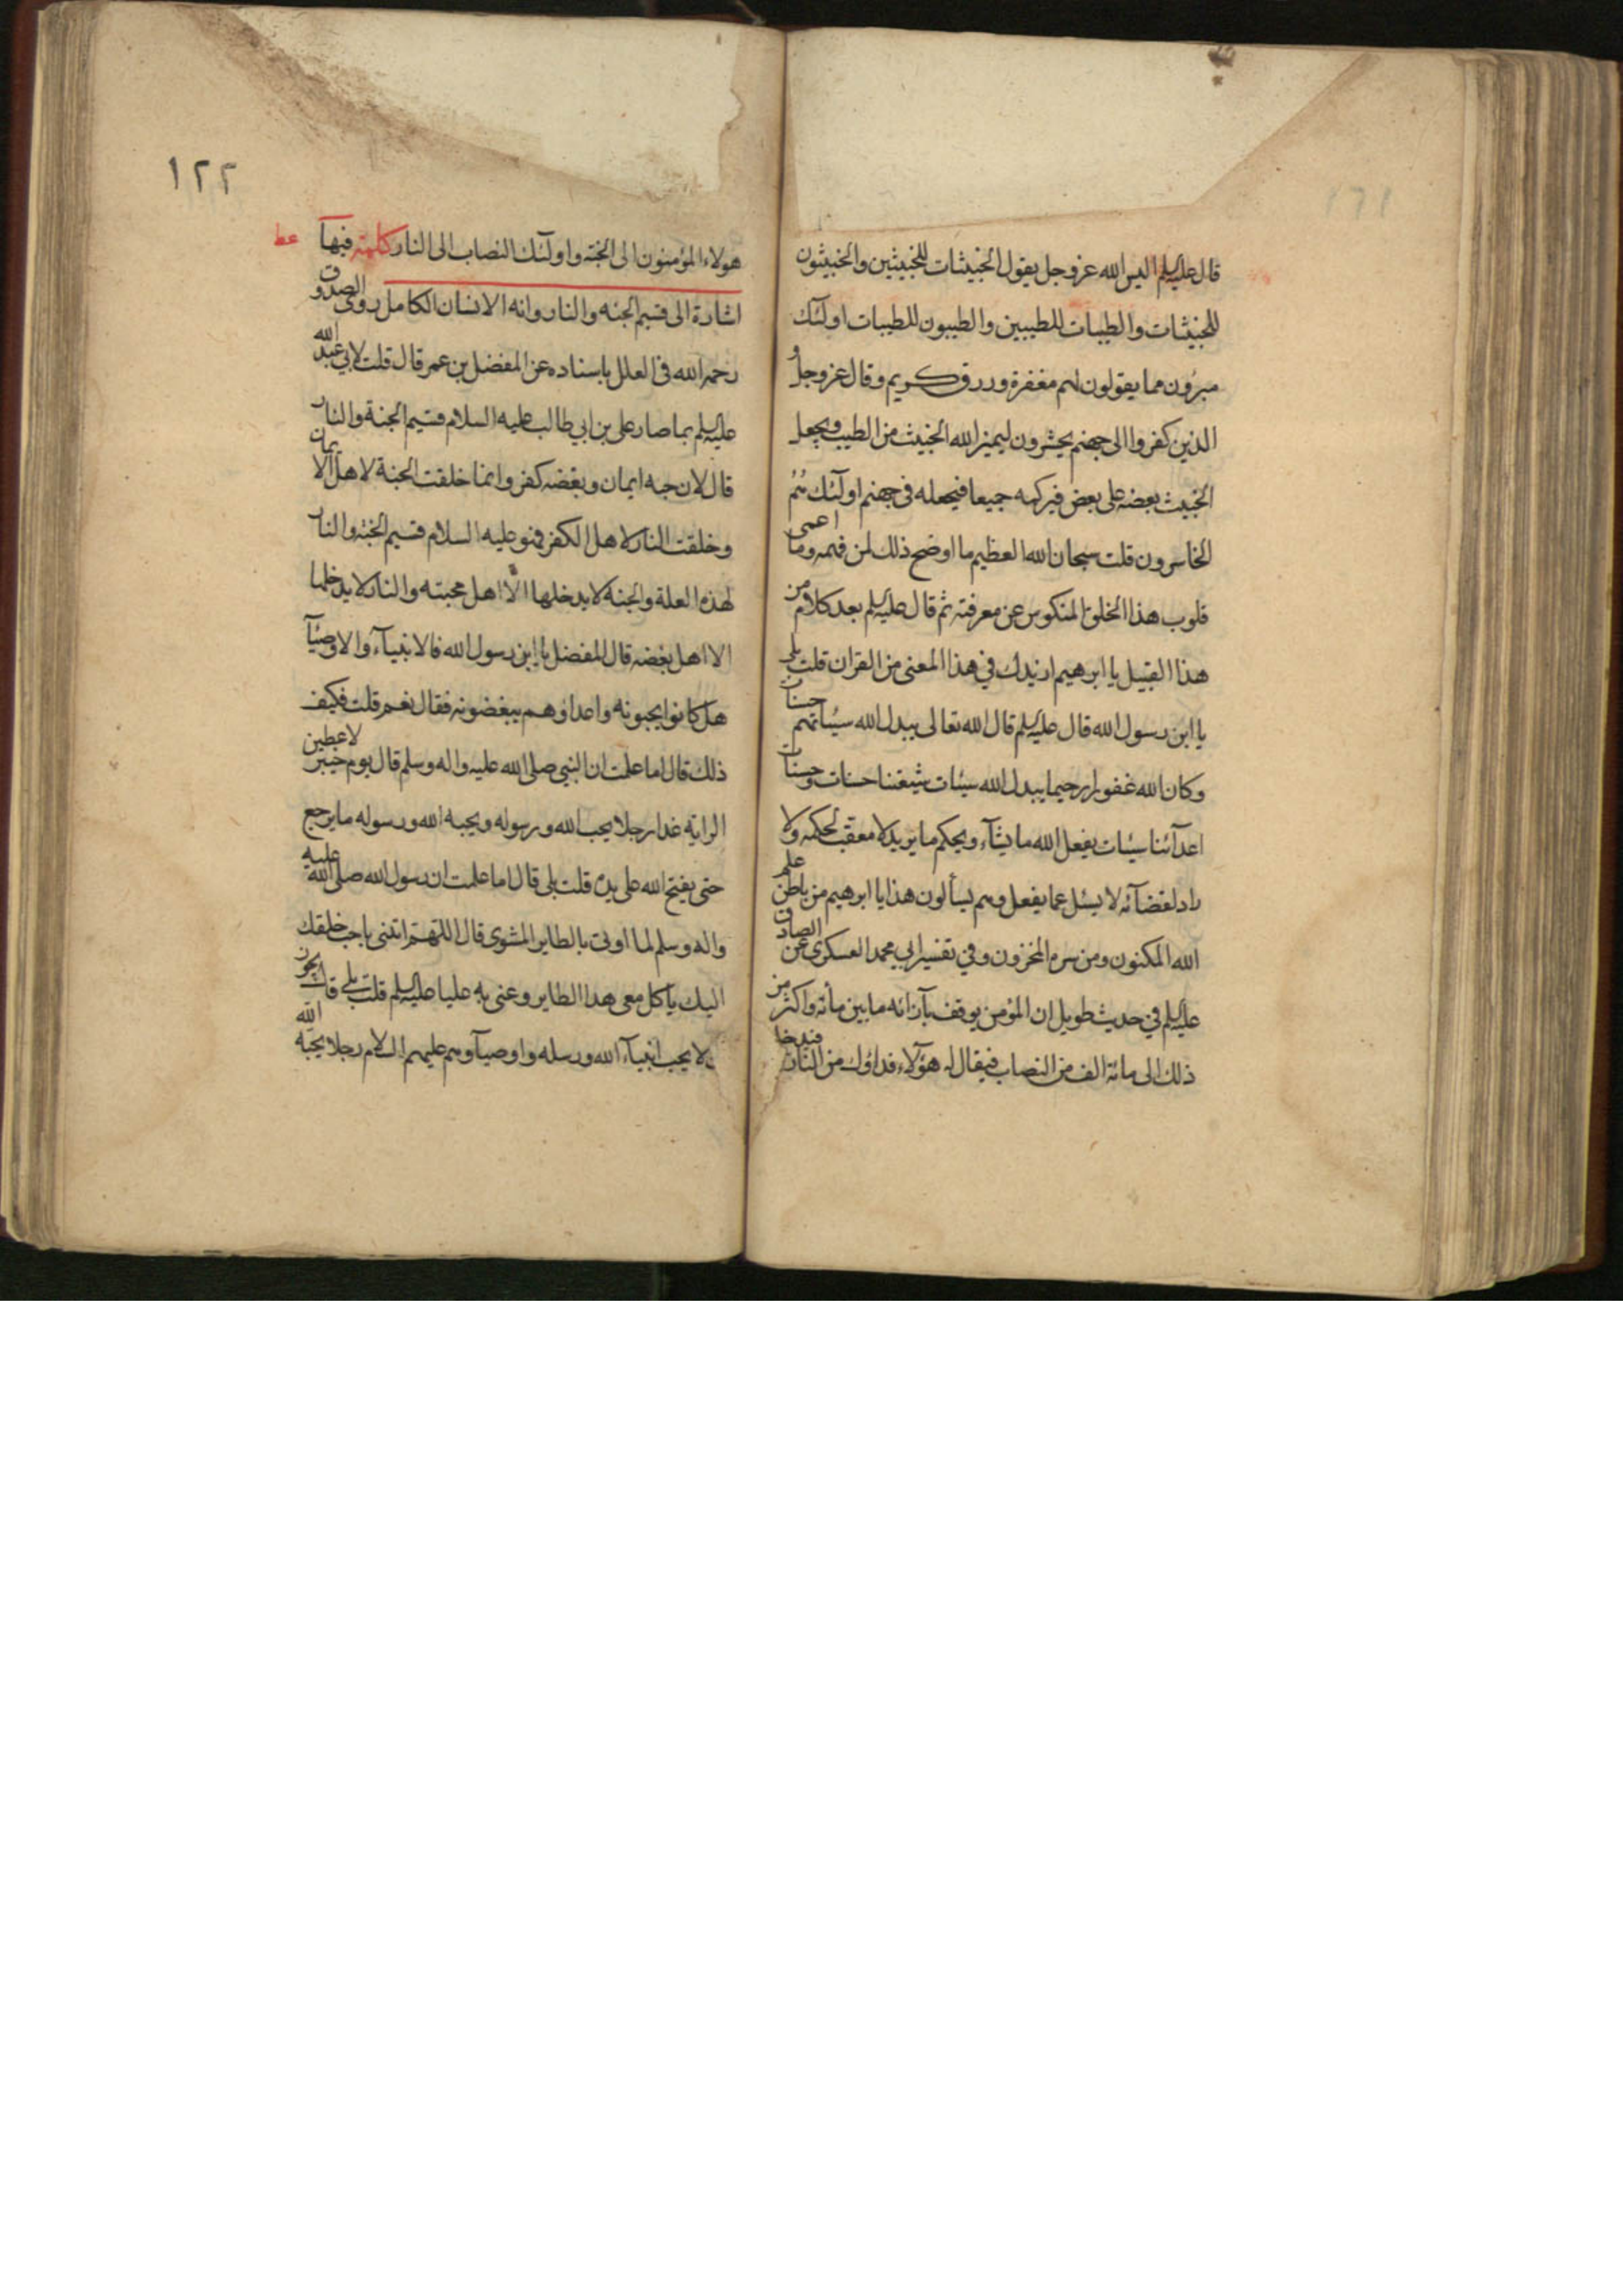 قال عليه السلم اليس الله عز وجل يقول الخبيثات للخبيثين والخبيثون
للخبيثات والطيبات للطيبين والطيبون للطيبات اولئك
مبرؤن مما يقولون لهم مغفرة ورزق كريم وقال عز وجل و
الذين كفروا الى جهنم يحشرون ليميز الله الخبيث من الطيب ويجعل
الخبيث بعضه على بعض فيركمه جميعا فيجعله في جهنم اولئك هم
الخاسرون قلت سبحان الله العظيم ما اوضح ذلك لمن فهمه وما اعمى
قلوب هذا الخلق المنكوس عن معرفته ثم قال عليه السلم بعد كلام من
هذا القبيل يا ابرهيم ازيدك في هذا المعنى من القران قلت بلى
يا ابن رسول الله قال عليه السلم قال الله تعالى يبدل الله سيئاتهم حسنات
وكان الله غفورا رحيما يبدل الله سيئات شيعتنا حسنات وحسنات
اعدآئنا سيئات يفعل الله ما يشآء ويحكم ما يريد لا معقب لحكمه ولا
راد لقضآئه لا يسئل عما يفعل وهم يسألون هذا يا ابرهيم من باطن علم
الله المكنون ومن سره المخزون وفي تفسير ابي محمد العسكري عن الصادق
عليه السلم في حديث طويل ان المؤمن يوقف بآزائه ما بين مأئة واكثر من
ذلك الى مائة الف من النصاب فيقال له هؤلآء فداؤك من النار فيدخل
١٢٢
هولاء المؤمنون الى الجنة واولئك النصاب الى النار كلمة فيها
عط
اشارة الى قسيم الجنه والنار وانه الانسان الكامل روى الصدوق
رحمه الله في العلل باسناده عن المفضل بن عمر قال قلت لابي عبد الله
عليه السلم بما صار على بن ابي طالب عليه السلام قسيم الجنة والنار
قال لان حبه ايمان وبغضه كفر وانما خلقت الجنة لاهل الايمان
وخلقت النار لاهل الكفر فهو عليه السلام قسيم الجنة والنار
لهذه العلة والجنه لا يدخلها الا اهل محبته والنار لا يدخلها
الا اهل بغضه قال المفضل يا ابن رسول الله فالانبيآء والاوصيآ
هل كانوا يحبونه واعداؤهم يبغضونه فقال نعم قلت فكيف
ذلك قال اما علمت ان النبي صلى الله عليه واله وسلم قال يوم خيبر لاعطين
الراية غدا رجلا يحب الله ورسوله ويحبه الله ورسوله ما يرجع
حتى يفتح الله على يده قلت بلى قال اما علمت ان رسول الله صلى الله عليه
واله وسلم لما اوتي بالطاير المشوى قال اللهم ائتنى باحب خلقك
اليك يأكل معى هذا الطاير وعنى به عليا عليه السلم قلت بلى قال يجوز
لا يحب انبيآء الله ورسله واوصيآوهم عليهم السلام رجلا يحبه الله